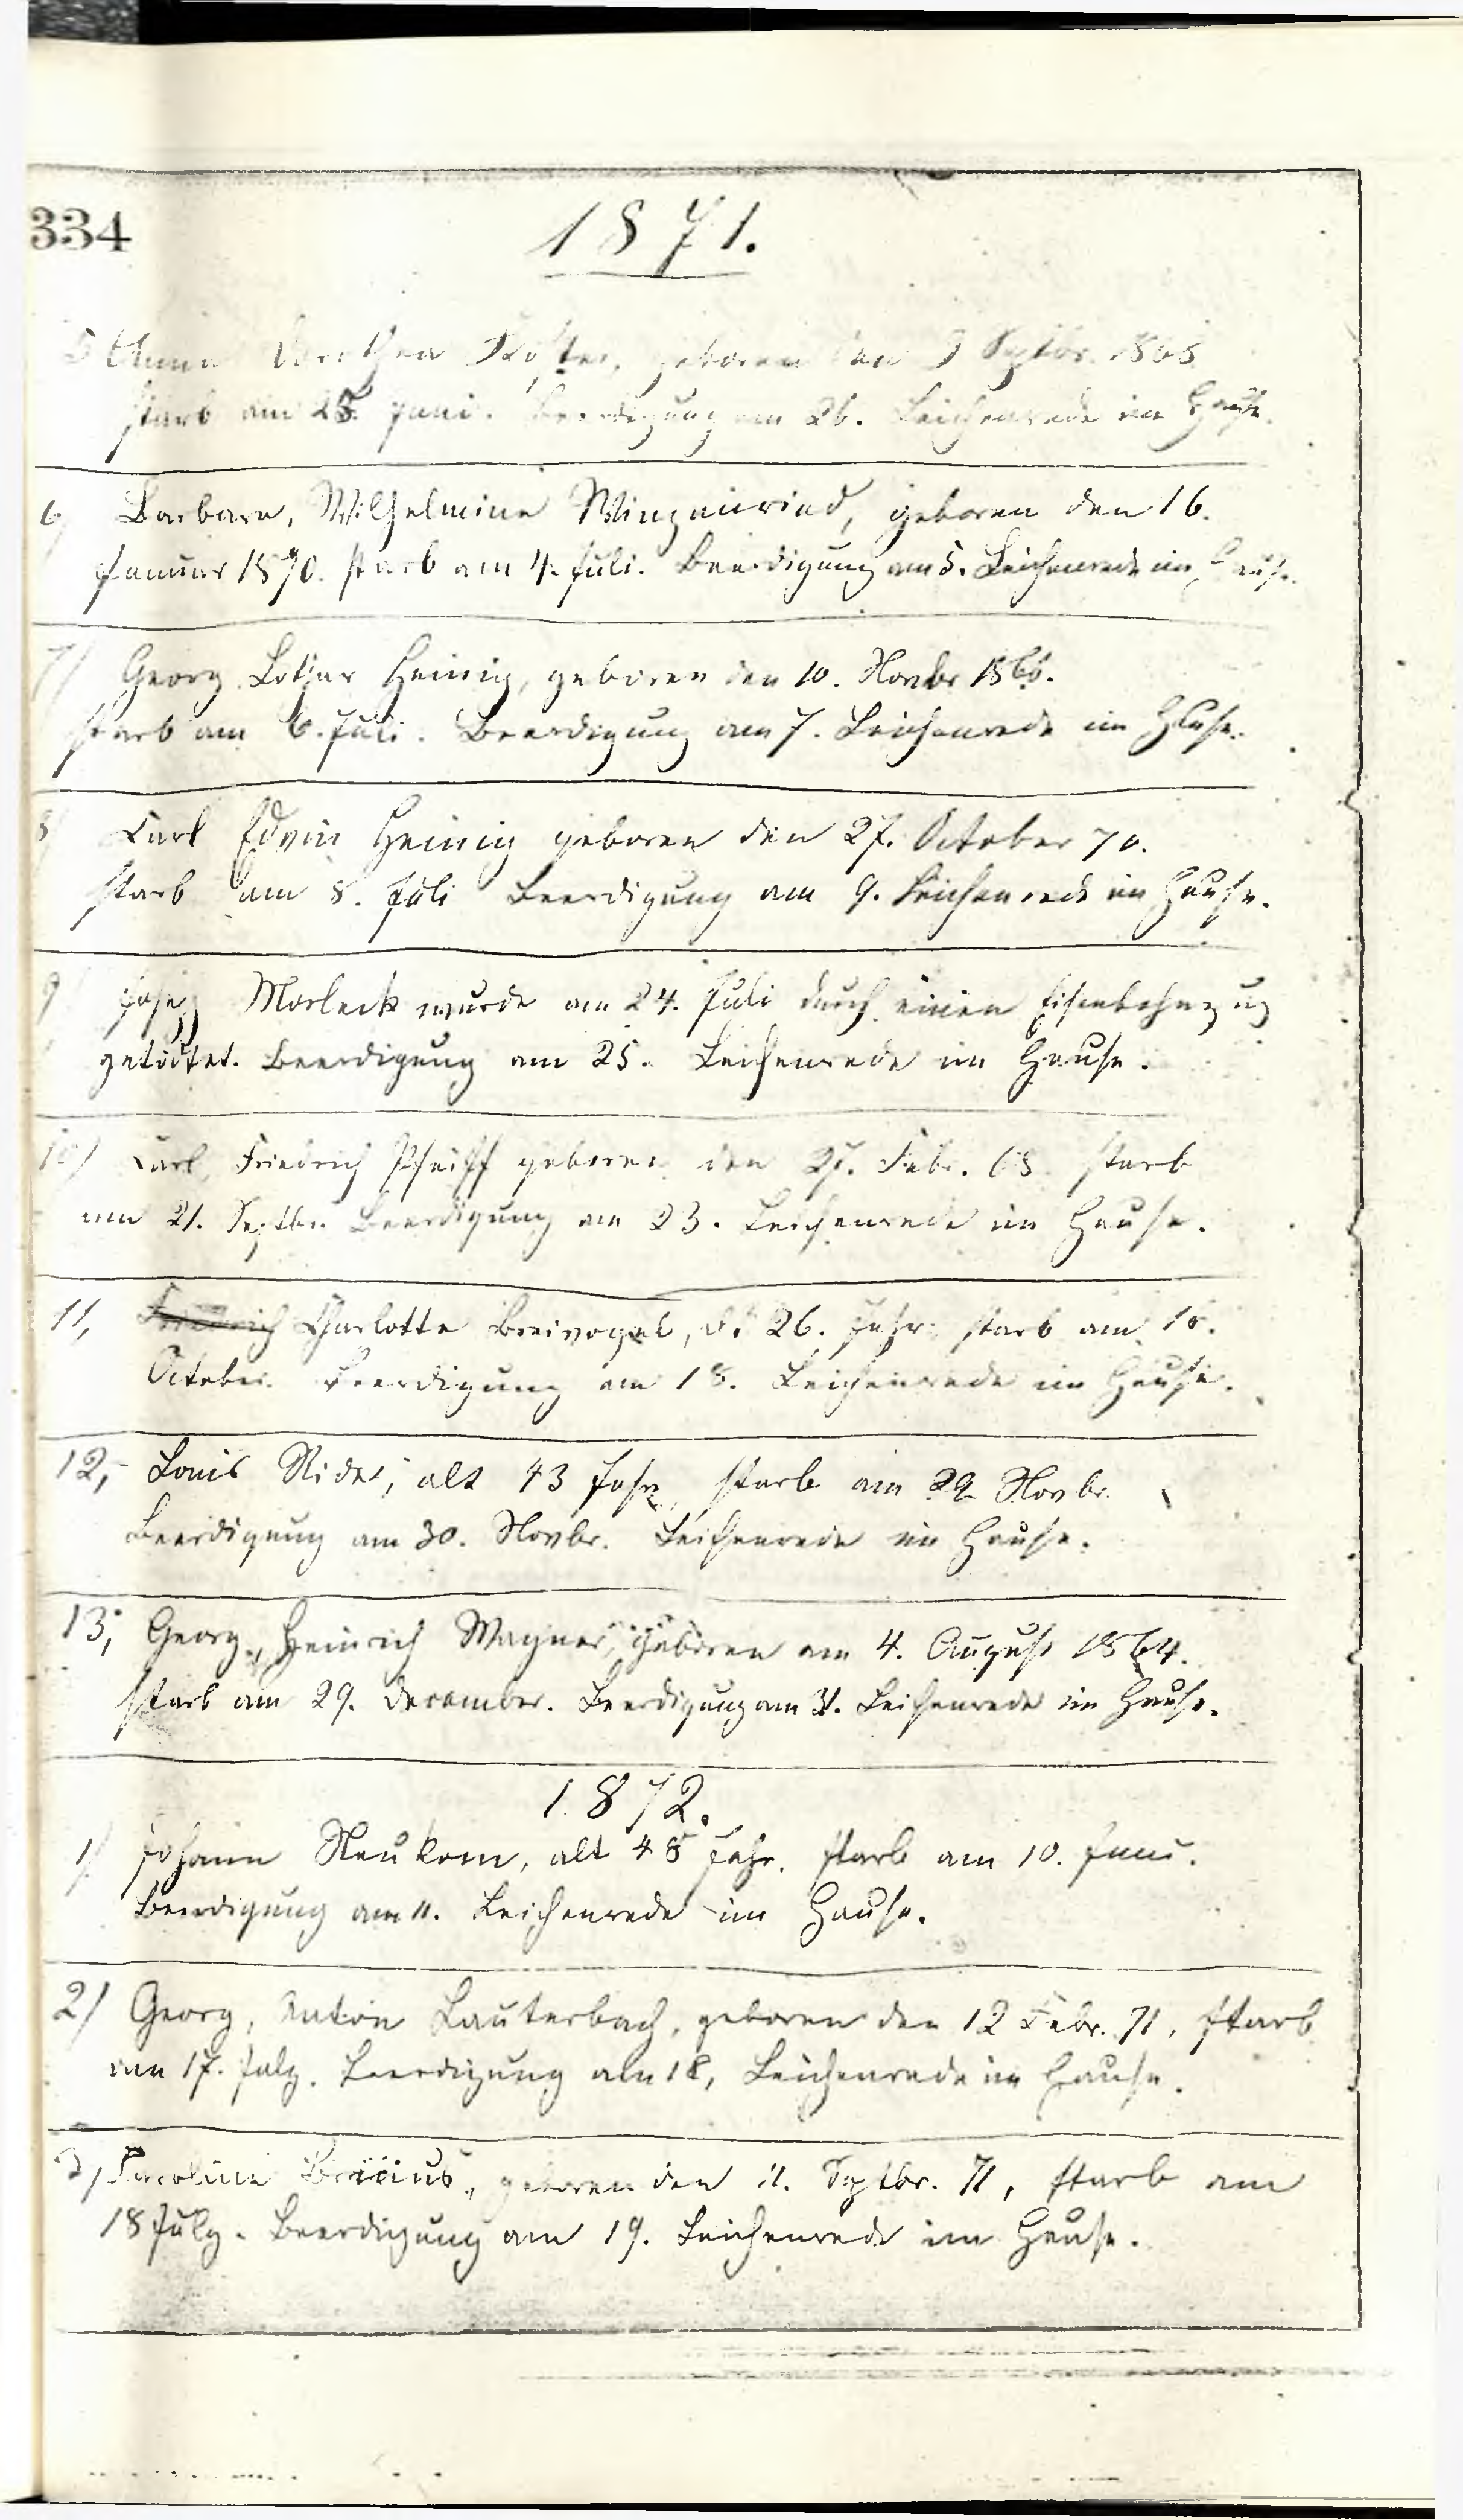 334
1871.
5 Anna Dorothea Koster, geboren den 9 Septbr. 1868
starb am 25. Juni. Beerdigung am 26. Leichenrede im Hause.
6/ Barbara, Wilhelmine Winzenried, geboren den 16.
Januar 1870. starb am 4. Juli. Beerdigung am 5. Leichenrede im Hause.
7/ Georg Lothar Heinig, geboren den 10. Novbr
starb am 6. Juli. Beerdigung am 7. Leichenrede im Hause.
8/ Carl Edvin Heinig geboren den 27. October 70.
starb am 8. Juli Beerdigung am 9. Leichenrede im Hause.
9/ Morleck wurde am 24. Juli durch einen Eisenbahnzug
getödtet. Beerdigung am 25. Leichenrede im Hause.
10/ Carl, Friedrich Pfeiff geboren den 27. Febr. 68 starb
am 21. Septbr. Beerdigung am 23. Leichenrede im Hause.
11, Friedrich Charlotte Breivogel, 26. Jahr starb am
October. Beerdigung am 18. Leichenrede im Hause.
12, Louis Rider, alt 43 Jahr, starb am 29 Novbr.
Beerdigung am 30. Novbr. Leichenrede im Hause.
13, Georg, Heinrich Wagner, geboren am 4. August 1864.
starb am 29. December. Beerdigung am 31. Leichenrede im Hause.
1872.
1/ Johann Neukom, alt 48 Jahr. starb am 10. Juni.
Beerdigung am 11. Leichenrede im Hause.
2/ Georg, Anton Lauterbach, geboren den 12 Febr. 71, starb
am 17. July. Beerdigung am 18, Leichenrede im Hause.
3/ Caroline Briccius, geboren den 11. Septbr. 71, starb am
18 July. Beerdigung am 19. Leichenrede im Hause.